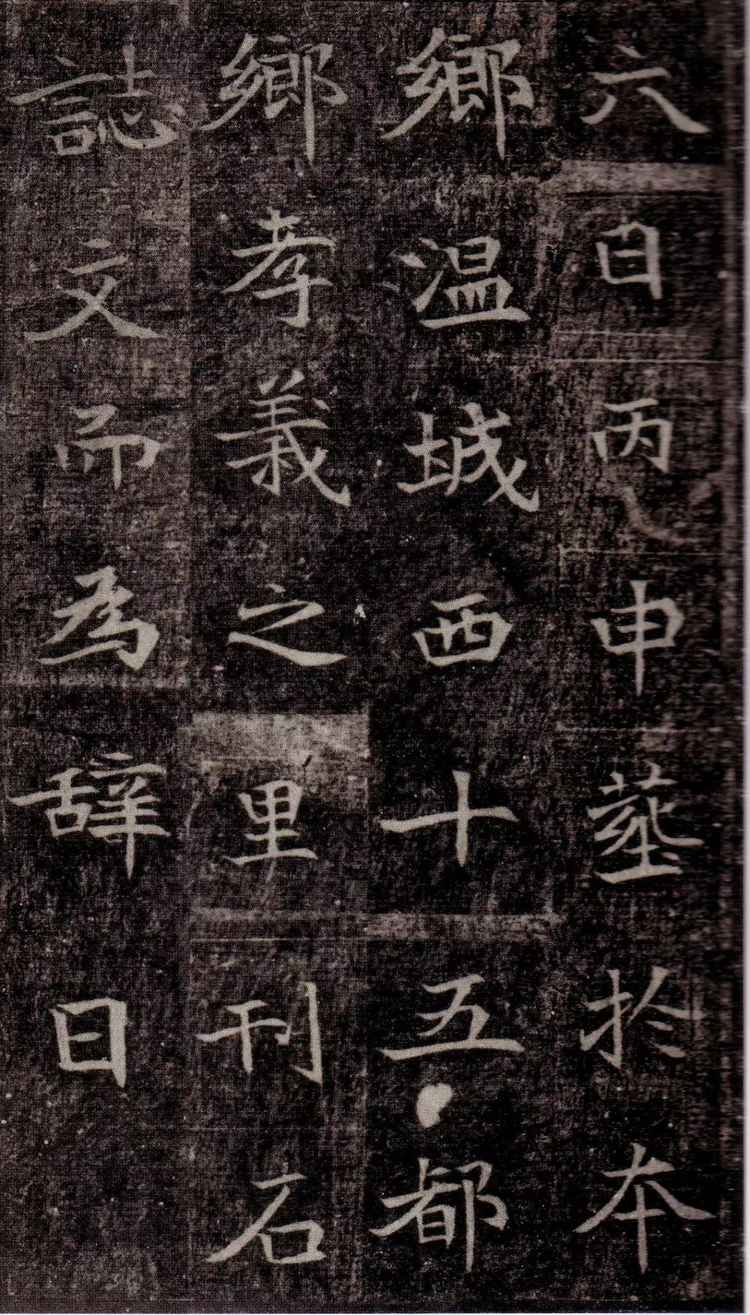 六日丙申塟扵本
鄉温城西十五都
鄉孝義之里刊石
誌文而為辞曰